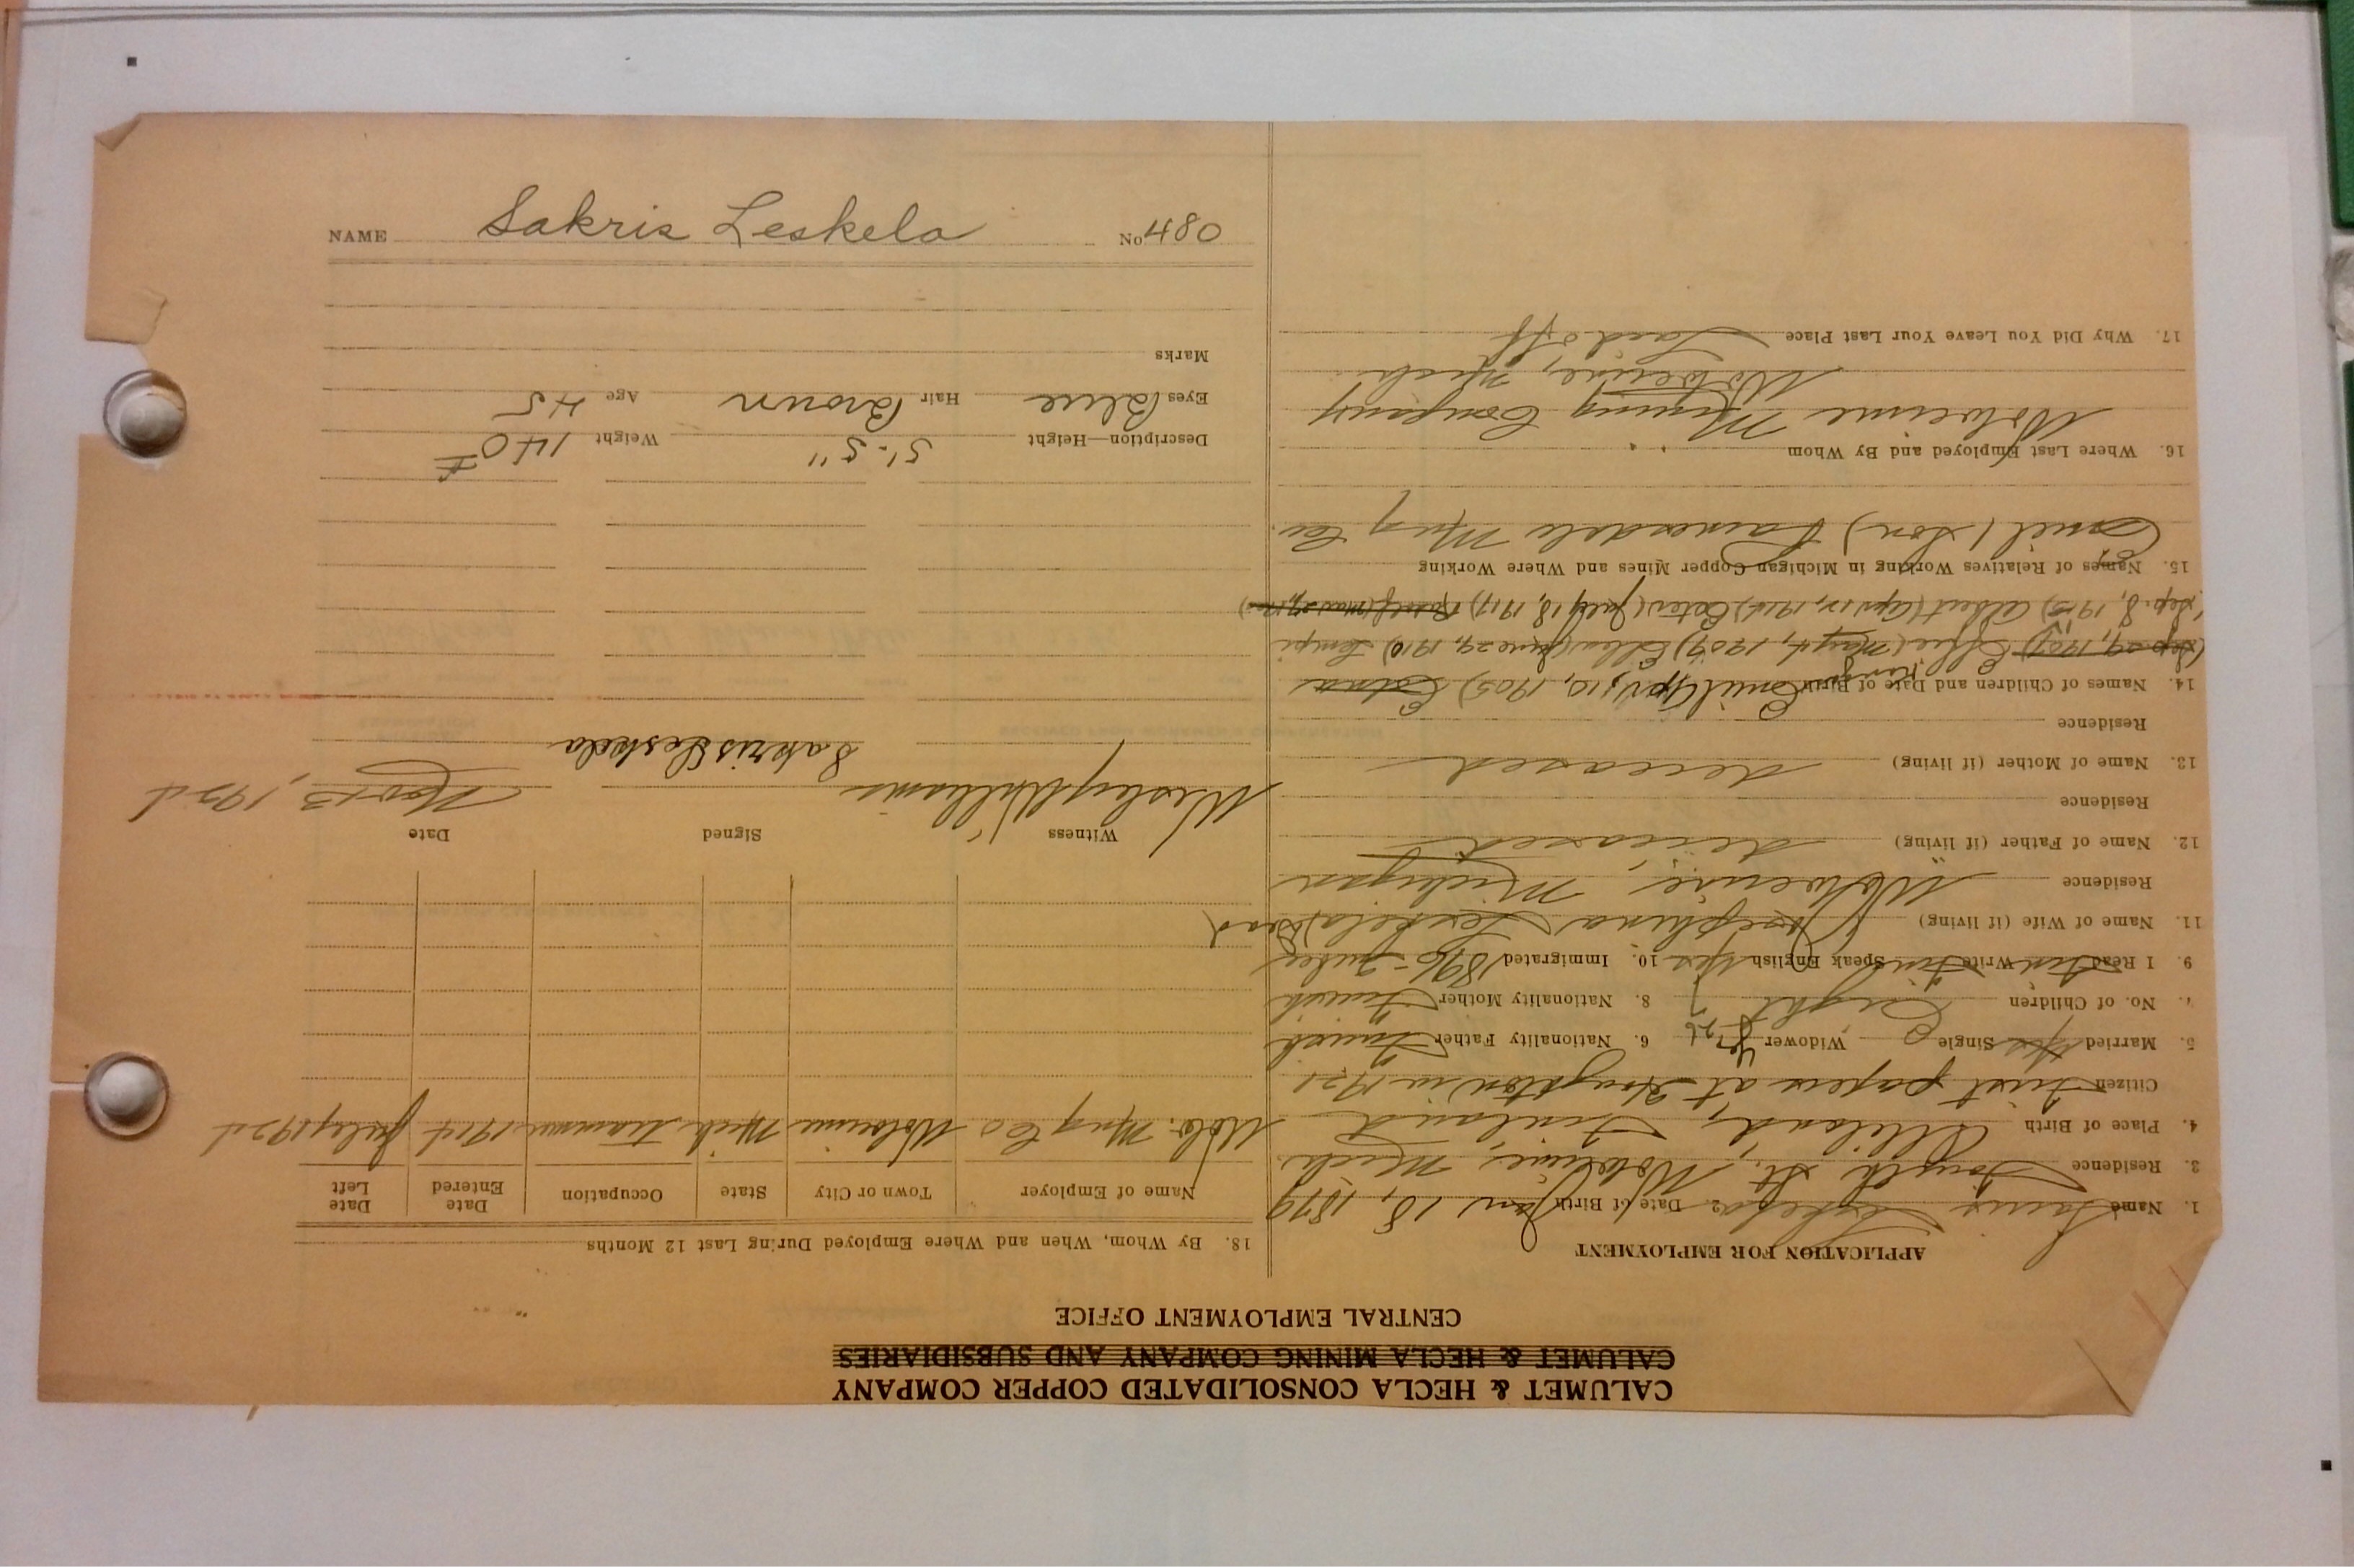 CALUMET & HECLA CONSOLIDATED COPPER COMPANY
CALUMET & HECLA MINING COMPANY AND SUBSIDIARIES
CENTRAL EMPLOYMENT OFFICE
APPLICATION FOR EMPLOYMENT
1. Name Leskela 2. Date of Birth Jan 18, 1879
3. Residence St. Wolverine Mich
4. Place of Birth Finland
Citizen First papers at Houghton in 1921
5. Married Yes Single 0 Widower 6. Nationality Father Finnish
7. No. of Children Eight 7 8. Nationality Mother Finnish
9. I Read Finn Write Finn Speak English Yes 10. Immigrated 1896
11. Name of Wife (if living) Josephina Leskela) Dead
Residence Wolverine, Michigan
12. Name of Father (if living) deceased
Residence
13. Name of Mother (if living) deceased
Residence
14. Names of Children and Date of Birth Emil (April 10, 1905)
(Sep 29, 1907) Effie (May 4, 1909) Ellen (June 29, 1910) Lempi
(Sep. 8, 1913) Albert (Apr 12, 1915) (July 18, 1917)
15. Names of Relatives Working in Michigan Copper Mines and Where Working
Emil (son) Painesdale Mng Co.
16. Where Last Employed and By Whom
Wolverine Mining Company
Wolverine, Mich.
17. Why Did You Leave Your Last Place Laed off
18. By Whom, When and Where Employed During Last 12 Months
Name of Employer Town or City State Occupation Date Entered Date Left
Wolv. Mng Co Wolverine Mich Trammer 1914 July 1924
Witness Signed Date
Wesley Williams Sakris Leskela Nov 13, 1924
Description—Height 5'-5" Weight 140 #
Eyes Blue Hair Brown Age 45
Marks
NAME Sakris Leskela No 480